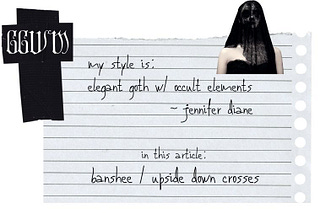 my style is:
elegant goth w/ occult elements
- jennifer diane
in this article:
banshee / upside down crosses